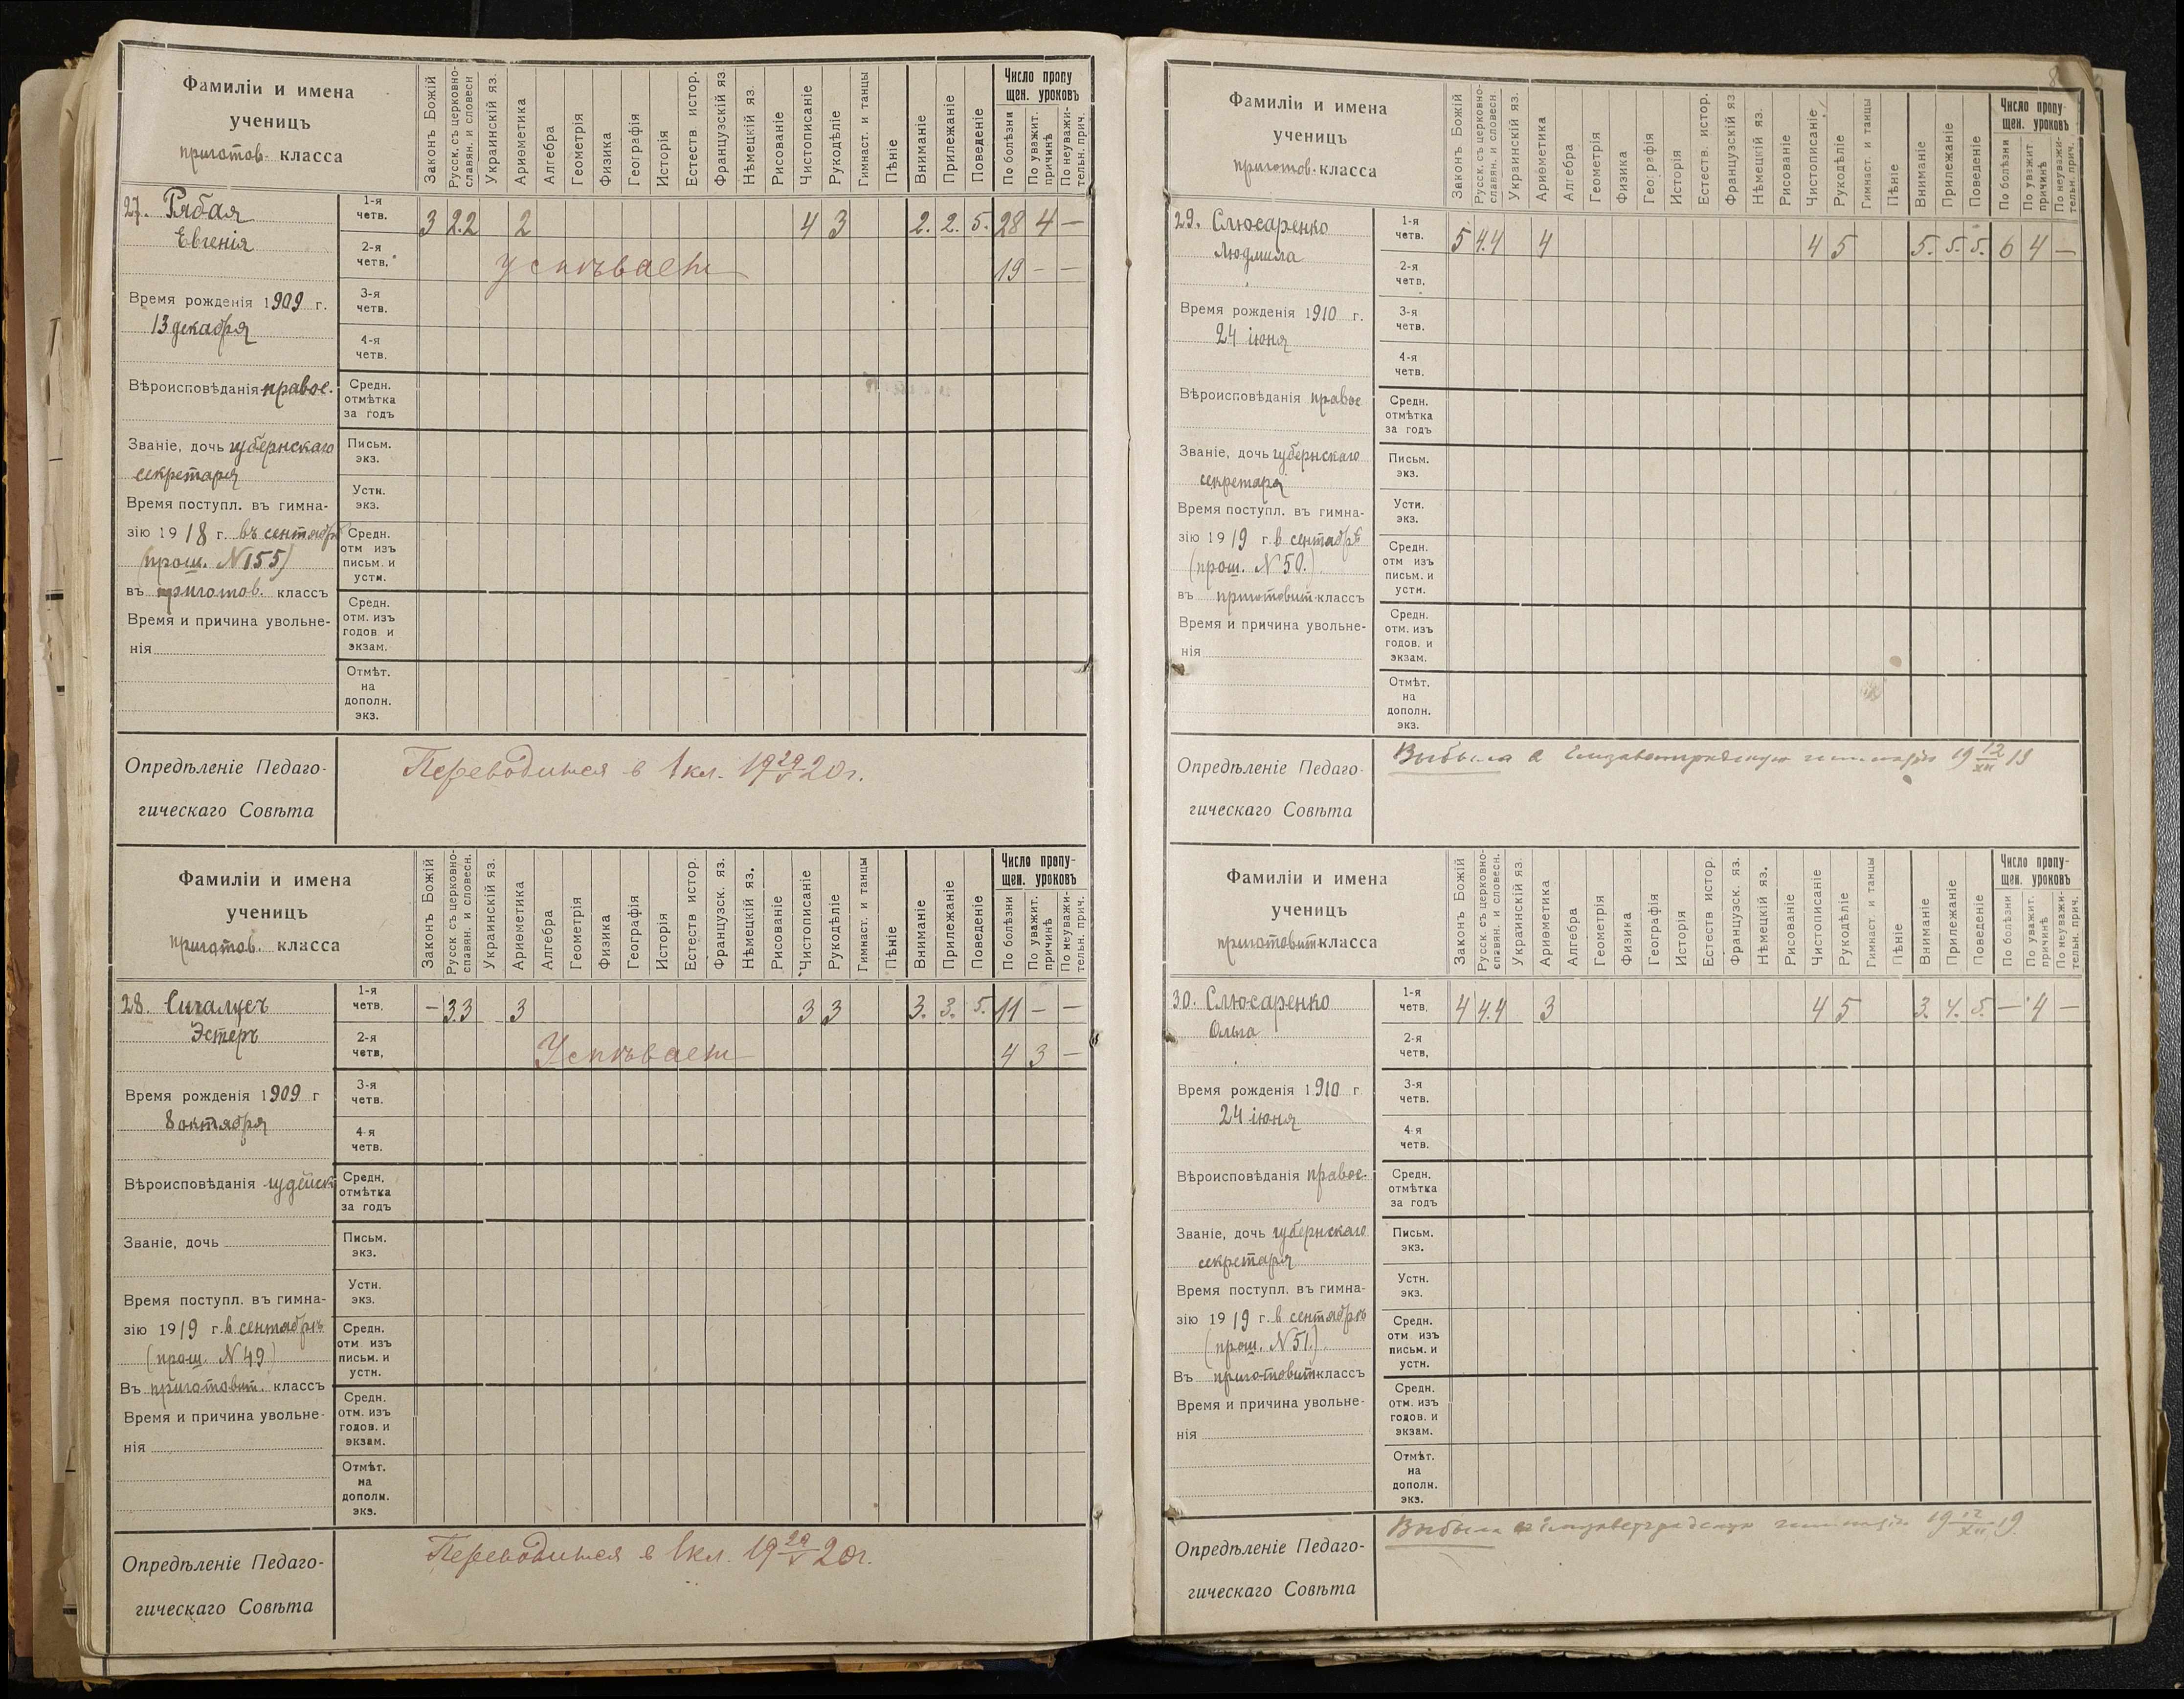 Фамиліи и имена
ученицъ
приготов. класса
Законъ Божій
Русск. съ церковно-
славян. и словесн
Украинскій яз.
Ариѳметика
Алгебра
Геометрія
Физика
Географія
Исторія
Естеств. истор.
Французскій яз.
Нѣмецкій яз.
Рисованіе
Чистописаніе
Рукодѣліе
Гимнаст. и танцы
Пѣніе
Вниманіе
Прилежаніе
Поведеніе
Число пропу
щен. уроковъ
По болѣзни
По уважит.
причинѣ
По неуважи-
тельн. прич.
27. Рябая
Евгенія
1-я четв. 3 2.2 2 4 3 2. 2. 5. 28 4 —
2-я четв. успѣвает 19 — —
3-я четв.
4-я четв.
Время рожденія 1909 г.
13 декабря
Вѣроисповѣданія правос.
Средн.
отмѣтка
за годъ
Званіе, дочь губернскаго
секретаря
Письм.
экз.
Время поступл. въ гимна-
зію 1918 г. въ сентябр
(прош. N 155)
въ приготов. классъ
Устн.
экз.
Средн.
отм изъ
письм. и
устн.
Время и причина увольне-
нія
Средн.
отм. изъ
годов и
экзам.
Отмѣт.
на
дополн.
экз.
Опредѣленіе Педаго-
гическаго Совѣта
Переводится в 1 кл. 19 29/V 20 г.
Фамиліи и имена
ученицъ
приготов. класса
Законъ Божій
Русск. съ церковно-
славян. и словесн.
Украинскій яз.
Ариѳметика
Алгебра
Геометрія
Физика
Географія
Исторія
Естеств истор.
Французск. яз.
Нѣмецкій яз.
Рисованіе
Чистописаніе
Рукодѣліе
Гимнаст. и танцы
Пѣніе
Вниманіе
Прилежаніе
Поведеніе
Число пропу-
щен. уроковъ
По болѣзни
По уважит.
причинѣ
По неуважи-
тельн. прич.
28. Сигалусъ
Эстеръ
1-я четв. — 3 3 3 3 3 3. 3. 5. 11 — —
2-я четв. Успѣвает 4 3 —
3-я четв.
4-я четв.
Время рожденія 1909 г
8 октября
Вѣроисповѣданія іудейск
Средн.
отмѣтка
за годъ
Званіе, дочь
Письм.
экз.
Время поступл. въ гимна-
зію 1919 г. в сентябрѣ
(прош. N 49)
Въ приготовит. классъ
Устн.
экз.
Средн.
отм изъ
письм. и
устн.
Время и причина увольне-
нія
Средн.
отм. изъ
годов. и
экзам.
Отмѣт.
на
дополн.
экз.
Опредѣленіе Педаго-
гическаго Совѣта
Переводится в 1 кл. 19 29/V 20 г.
Фамиліи и имена
ученицъ
приготов. класса
Законъ Божій
Русск. съ церковно-
славян. и словесн
Украинскій яз.
Ариѳметика
Алгебра
Геометрія
Физика
Географія
Исторія
Естеств. истор.
Французскій яз
Нѣмецкій яз.
Рисованіе
Чистописаніе
Рукодѣліе
Гимнаст. и танцы
Пѣніе
Вниманіе
Прилежаніе
Поведеніе
Число пропу-
щен. уроковъ
По болѣзни
По уважит.
причинѣ
По неуважи-
тельн. прич.
29. Слюсаренко
Людмила
1-я четв. 5 4.4 4 4 5 5. 5. 5. 6 4 —
2-я четв.
3-я четв.
4-я четв.
Время рожденія 1910 г.
24 іюня
Вѣроисповѣданія правос
Средн.
отмѣтка
за годъ
Званіе, дочь губернскаго
секретаря
Письм.
экз.
Время поступл. въ гимна-
зію 1919 г. в сентябрѣ
(прош. N 50.)
въ приготовит классъ
Устн.
экз.
Средн.
отм изъ
письм. и
устн.
Время и причина увольне-
нія
Средн.
отм. изъ
годов. и
экзам.
Отмѣт.
на
дополн.
экз.
Опредѣленіе Педаго-
гическаго Совѣта
Выбыла в Елизаветградскую гимназію 19 12/XII 19
Фамиліи и имена
ученицъ
приготовит класса
Законъ Божій
Русск. съ церковно-
славян. и словесн.
Украинскій яз.
Ариѳметика
Алгебра
Геометрія
Физика
Географія
Исторія
Естеств истор.
Французск. яз.
Нѣмецкій яз.
Рисованіе
Чистописаніе
Рукодѣліе
Гимнаст. и танцы
Пѣніе
Вниманіе
Прилежаніе
Поведеніе
Число пропу-
щен. уроковъ
По болѣзни
По уважит.
причинѣ
По неуважи-
тельн. прич.
30. Слюсаренко
Ольга
1-я четв. 4 4.4 3 4 5 3. 4. 5. — 4 —
2-я четв.
3-я четв.
4-я четв.
Время рожденія 1910 г
24 іюня
Вѣроисповѣданія правос.
Средн.
отмѣтка
за годъ
Званіе, дочь губернскаго
секретаря
Письм.
экз.
Время поступл. въ гимна-
зію 1919 г. в сентябрѣ
(прош. N 51.)
Въ приготовит классъ
Устн.
экз.
Средн.
отм изъ
письм. и
устн.
Время и причина увольне-
нія
Средн.
отм. изъ
годов. и
экзам.
Отмѣт.
на
дополн.
экз.
Опредѣленіе Педаго-
гическаго Совѣта
Выбыла в Елизаветградскую гимназію 19 12/XII 19